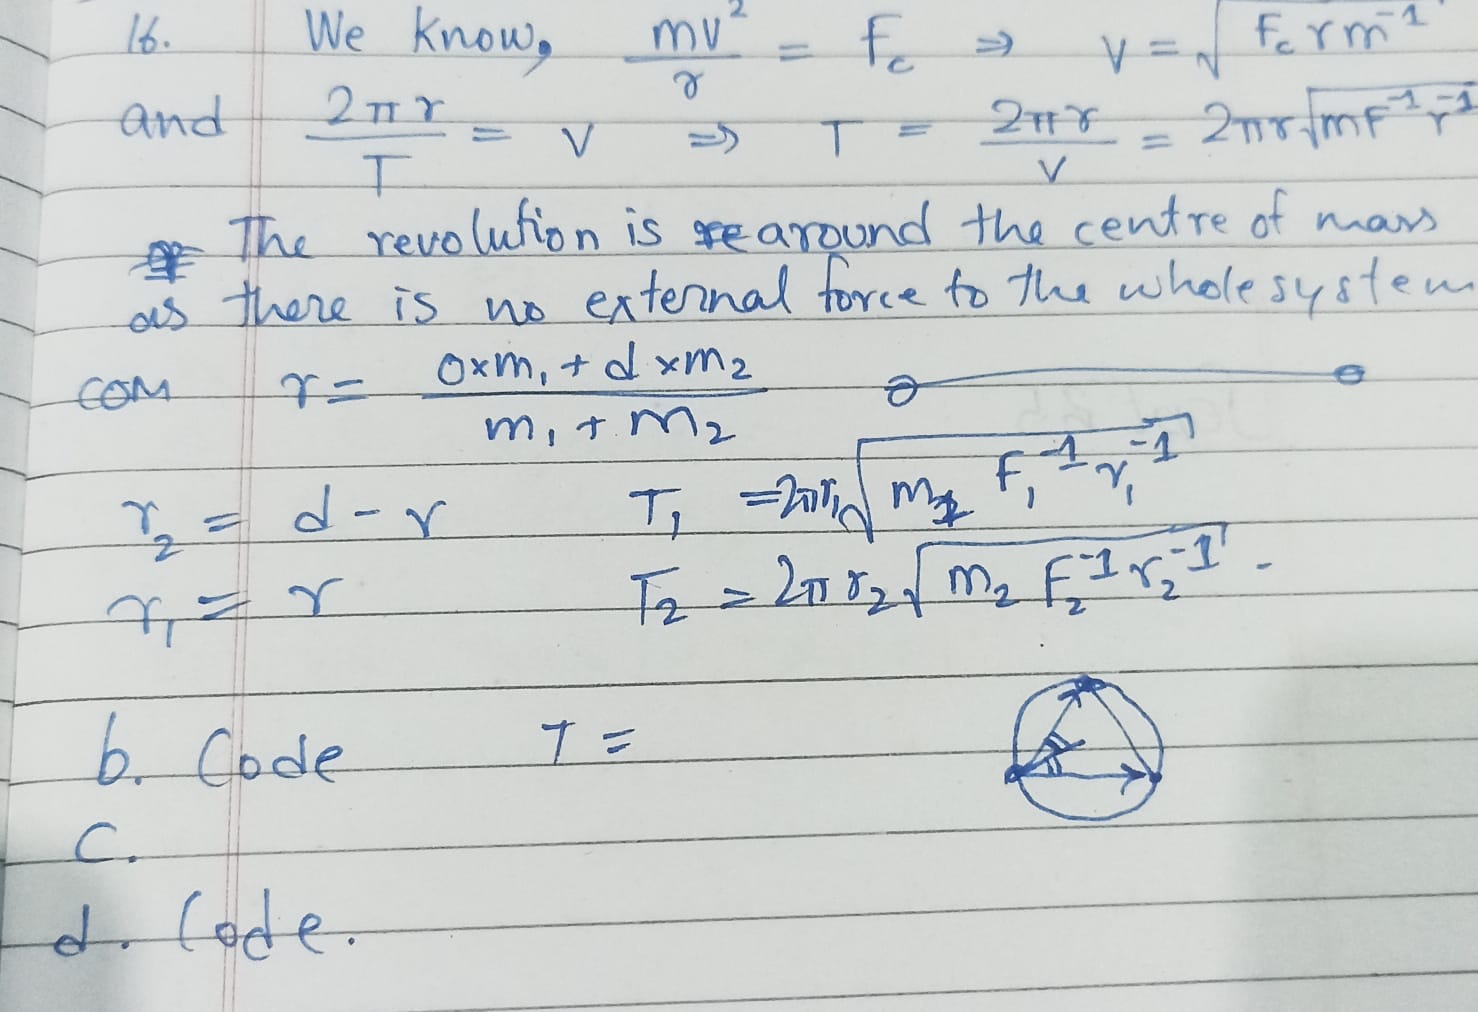 16. We know, mv²/r = Fc ⇒ v = √(Fc r m⁻¹)
and 2πr/T = v ⇒ T = 2πr/v = 2πr√(mF⁻¹r⁻¹)
The revolution is around the centre of mass
as there is no external force to the whole system
COM r = (0×m₁ + d×m₂)/(m₁ + m₂)
r₂ = d - r T₁ = 2πr₁√(m₁ F₁⁻¹ r₁⁻¹)
r₁ = r T₂ = 2πr₂√(m₂ F₂⁻¹ r₂⁻¹) -
b. Code T =
c.
d. Code.